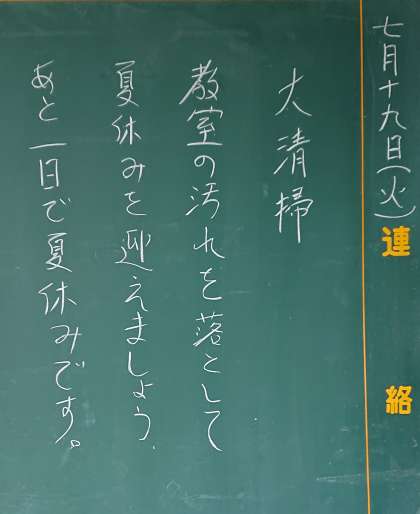 七月十九日(火)
連絡
大清掃
教室の汚れを落として
夏休みを迎えましょう.
あと一日で夏休みです。